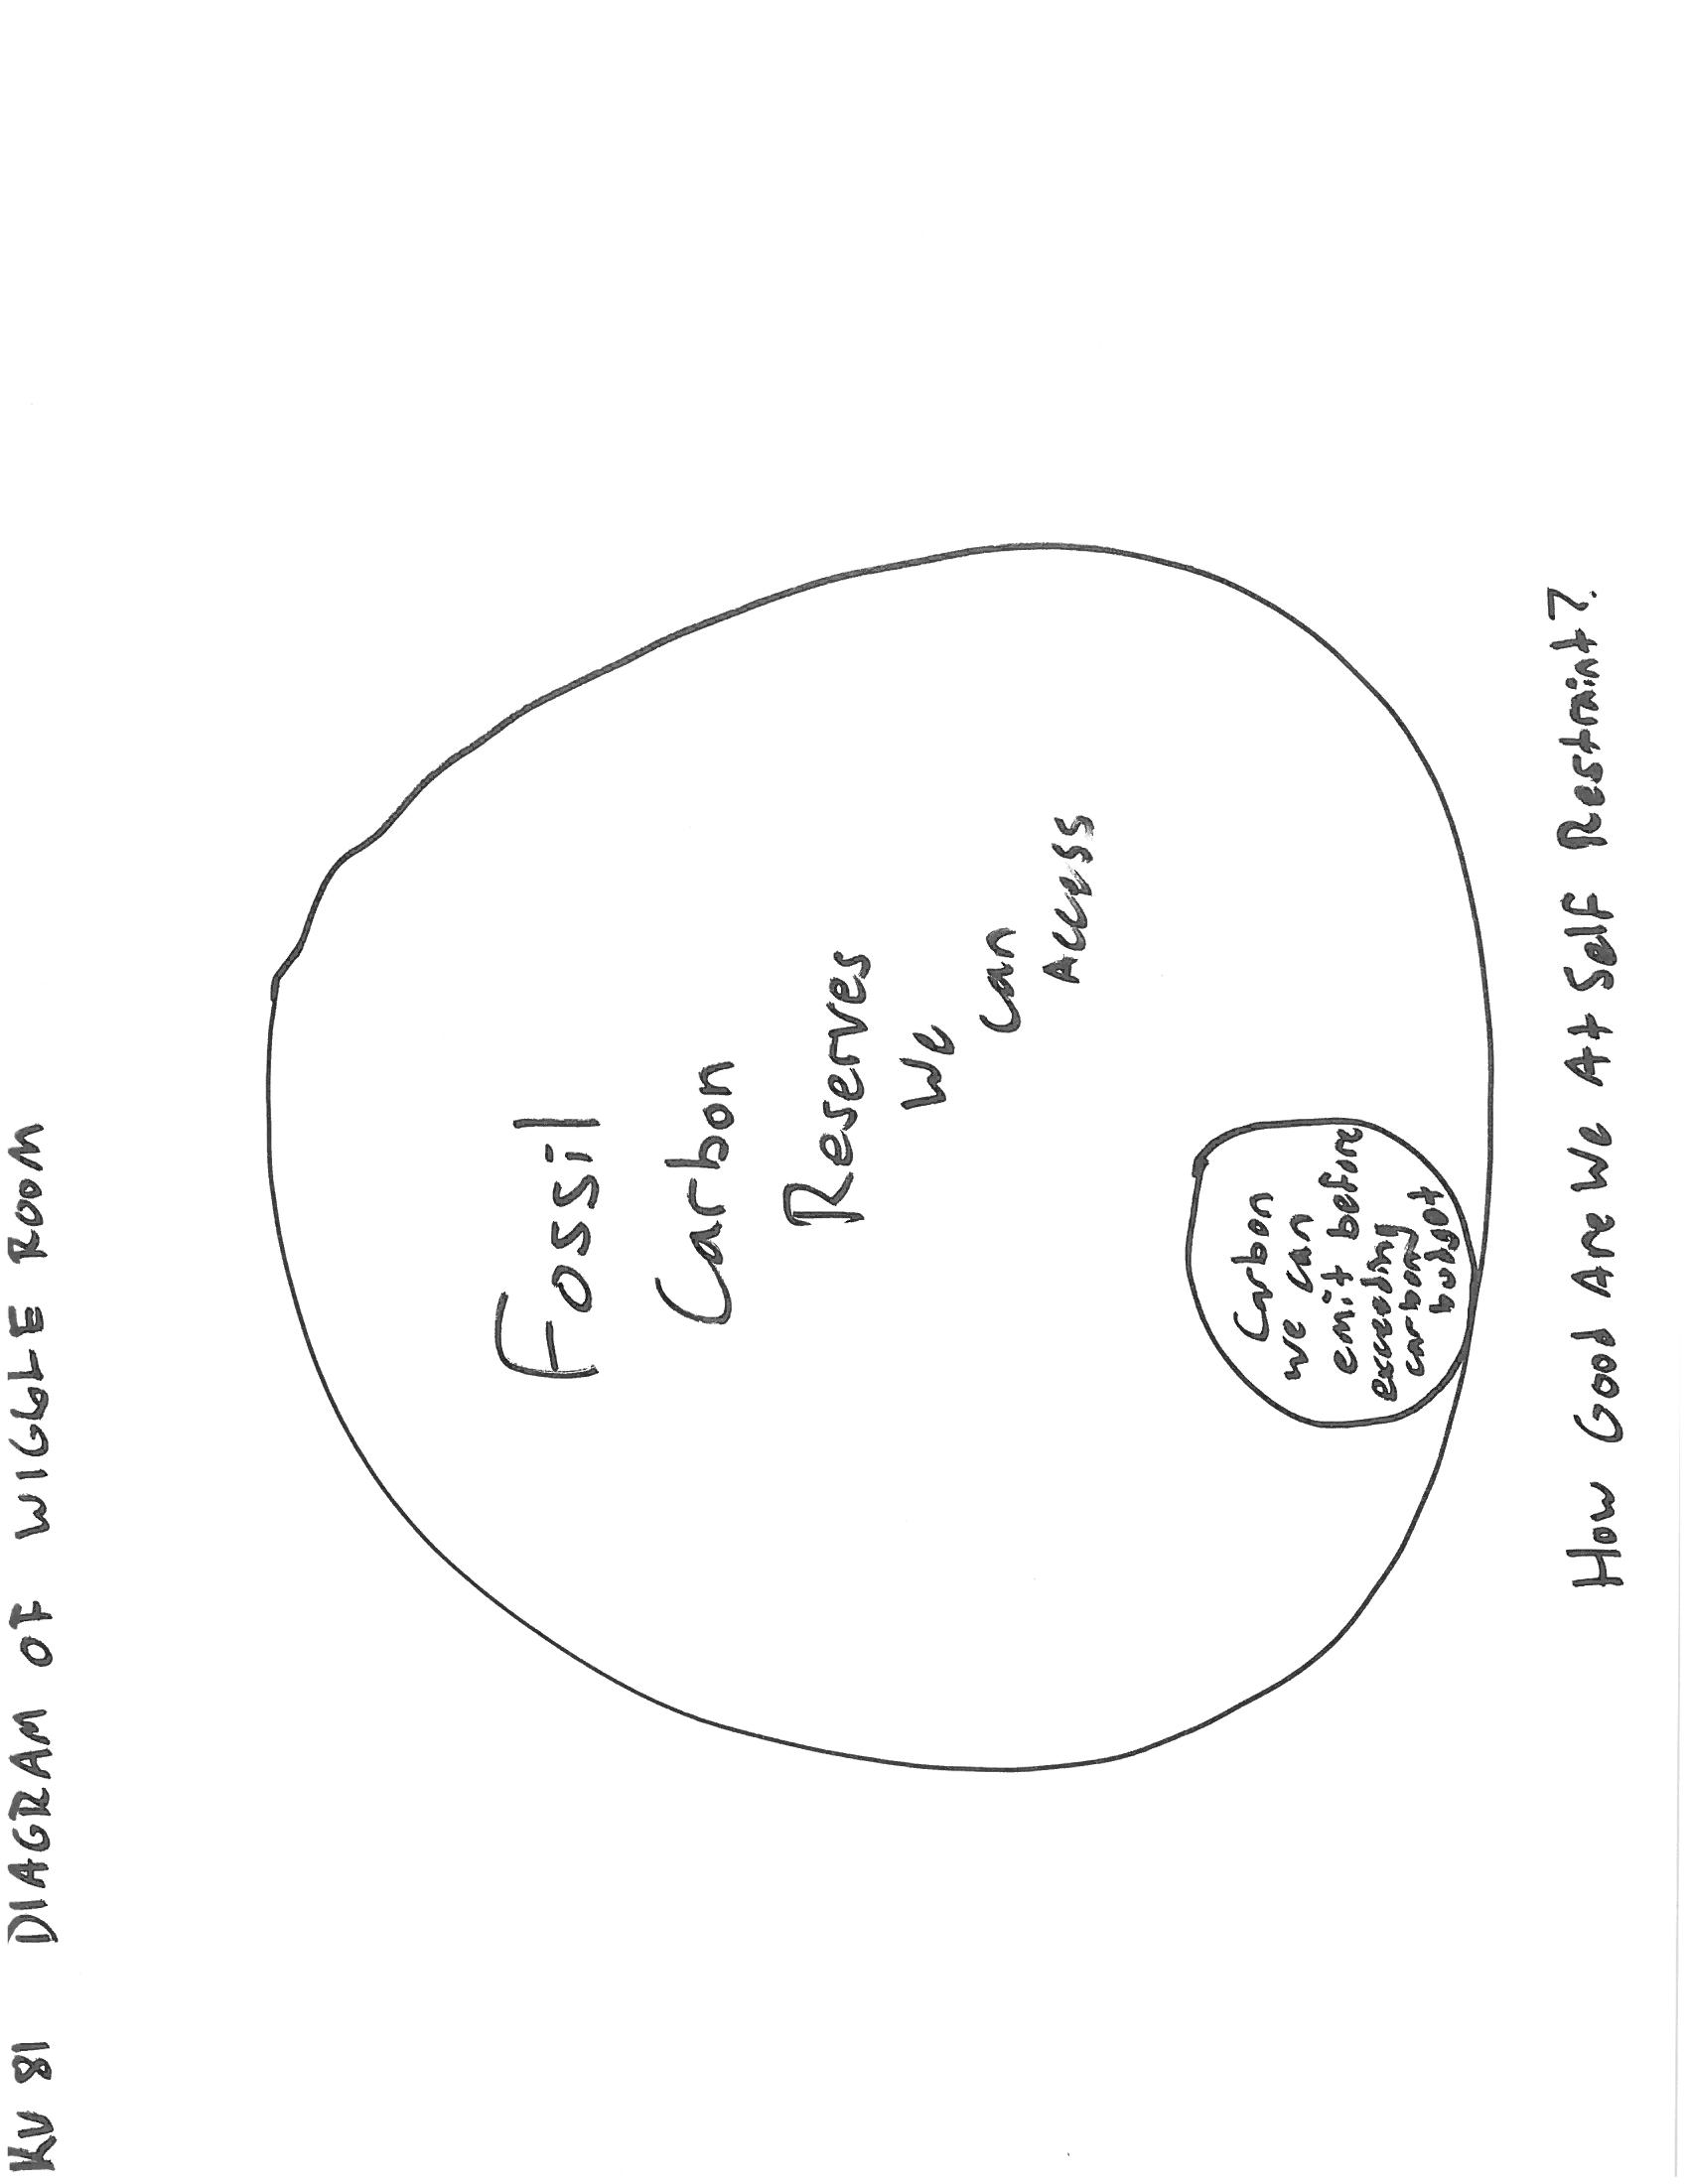 KV 81 DIAGRAM OF WIGGLE ROOM
Fossil
Carbon
Reserves
We
Can
Access
Carbon
we can
emit before
exceeding
carbon
budget
How Good Are We At Self Restraint?